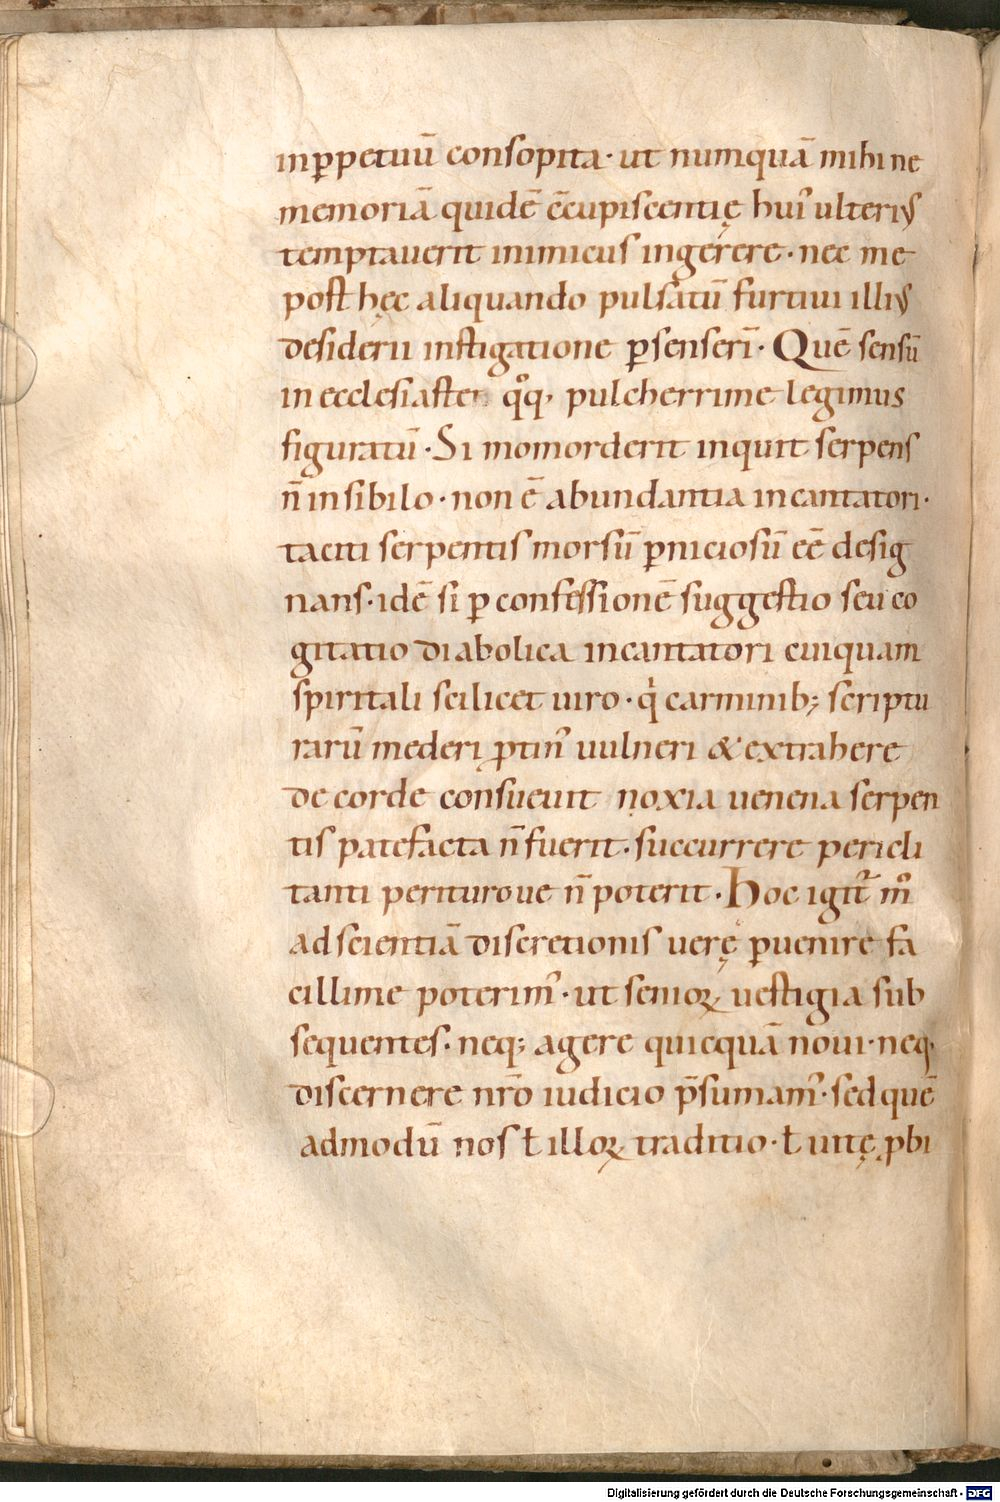 inꝑpetuū consopita· ut numquā mihi ne
memoriā quidē ꝯcupiscentię hui᾽ ulteri᾽
temptauerit inimicus ingerere· nec me
post hęc aliquando pulsatū furtiui illi᾽
desiderii instigatione ꝑsenserī· Quē sensū
in ecclesiaste qͦq, pulcherrime legimus
figuratū· Si momorderit inquit serpens
n̄ in sibilo· non ē abundantia incantatori·
taciti serpentis morsū ꝑniciosū eē desig
nans· idē si ꝑ confessionē suggestio seu co
gitatio diabolica incantatori cuiquam
spiritali scilicet uiro· qͥ carminib; scriptu
rarū mederi ꝓtin᾽ uulneri & extrahere
de corde consueuit noxia uenena serpen
tis patefacta n̄ fuerit· succurrere pericli
tanti perituroue n̄ poterit· Hoc igit᷑ mͦ
ad scientiā discretionis uerę ꝑuenire fa
cillime poterim᾽· ut senioꝝ uestigia sub
sequentes· neq; agere quicquā noui· neq,
discernere nr̄o iudicio p̄sumam᾽· sed quē
admodū nos ƚ illoꝝ traditio· ƚ uitę ꝓbi
Digitalisierung gefördert durch die Deutsche Forschungsgemeinschaft - DFG